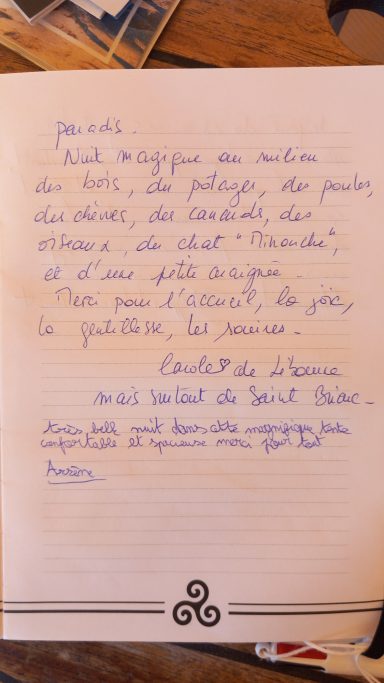 paradis.
Nuit magique au milieu
des bois, du potager, des poules,
des chèvres, des canards, des
oiseaux, du chat "Minouche",
et d'une petite araignée.
Merci pour l'accueil, la joie,
la gentillesse, les sourires.
Carole de
mais surtout de Saint Brieuc -
très belle nuit dans cette magnifique tente
confortable et spacieuse merci pour tout
Arsène